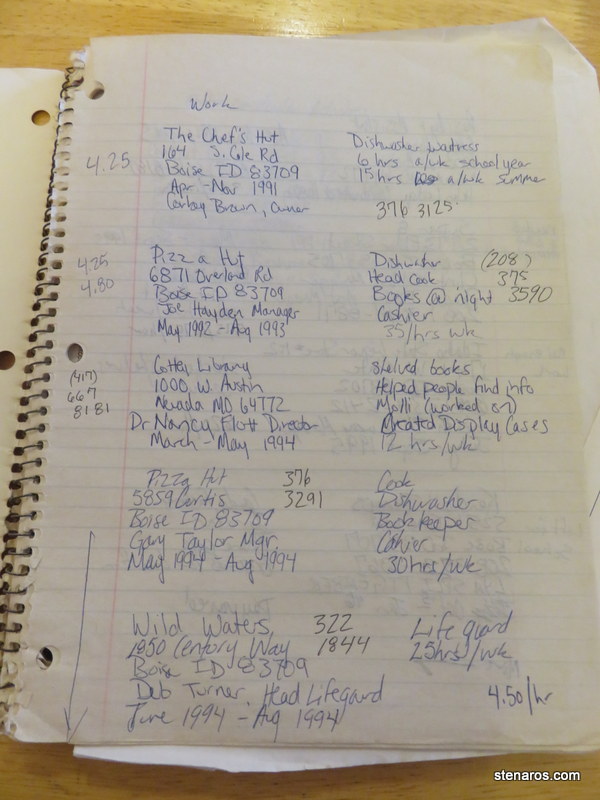 Work
The Chef's Hut
Dishwasher Waitress
4.25
164 S. Cole Rd
6 hrs a/wk school year
Boise ID 83709
15 hrs a/wk summer
Apr - Nov 1991
Corbey Brown, Owner
376 3125
4.25
Pizza Hut
Dishwasher
(208)
4.80
6871 Overland Rd
Head Cook
375
Boise ID 83709
Books @ night
3590
Joe Hayden Manager
Cashier
May 1992 - Aug 1993
35/hrs wk
(417)
667
8181
Cottey Library
shelved books
1000 W. Austin
Helped people find info
Nevada MO 64772
Molli (worked on)
Dr Nancy Director
Created Display Cases
March - May 1994
12 hrs/wk
Pizza Hut
376
Cook
5859 Curtis
3291
Dishwasher
Boise ID 83709
Bookkeeper
Gary Taylor Mgr.
Cahier
May 1994 - Aug 1994
30hrs/wk
Wild Waters
322
Lifeguard
1850 Century Way
1844
25hrs/wk
Boise ID 83709
Deb Turner, Head Lifegaurd
4.50/hr
June 1994 - Aug 1994
stenaros.com